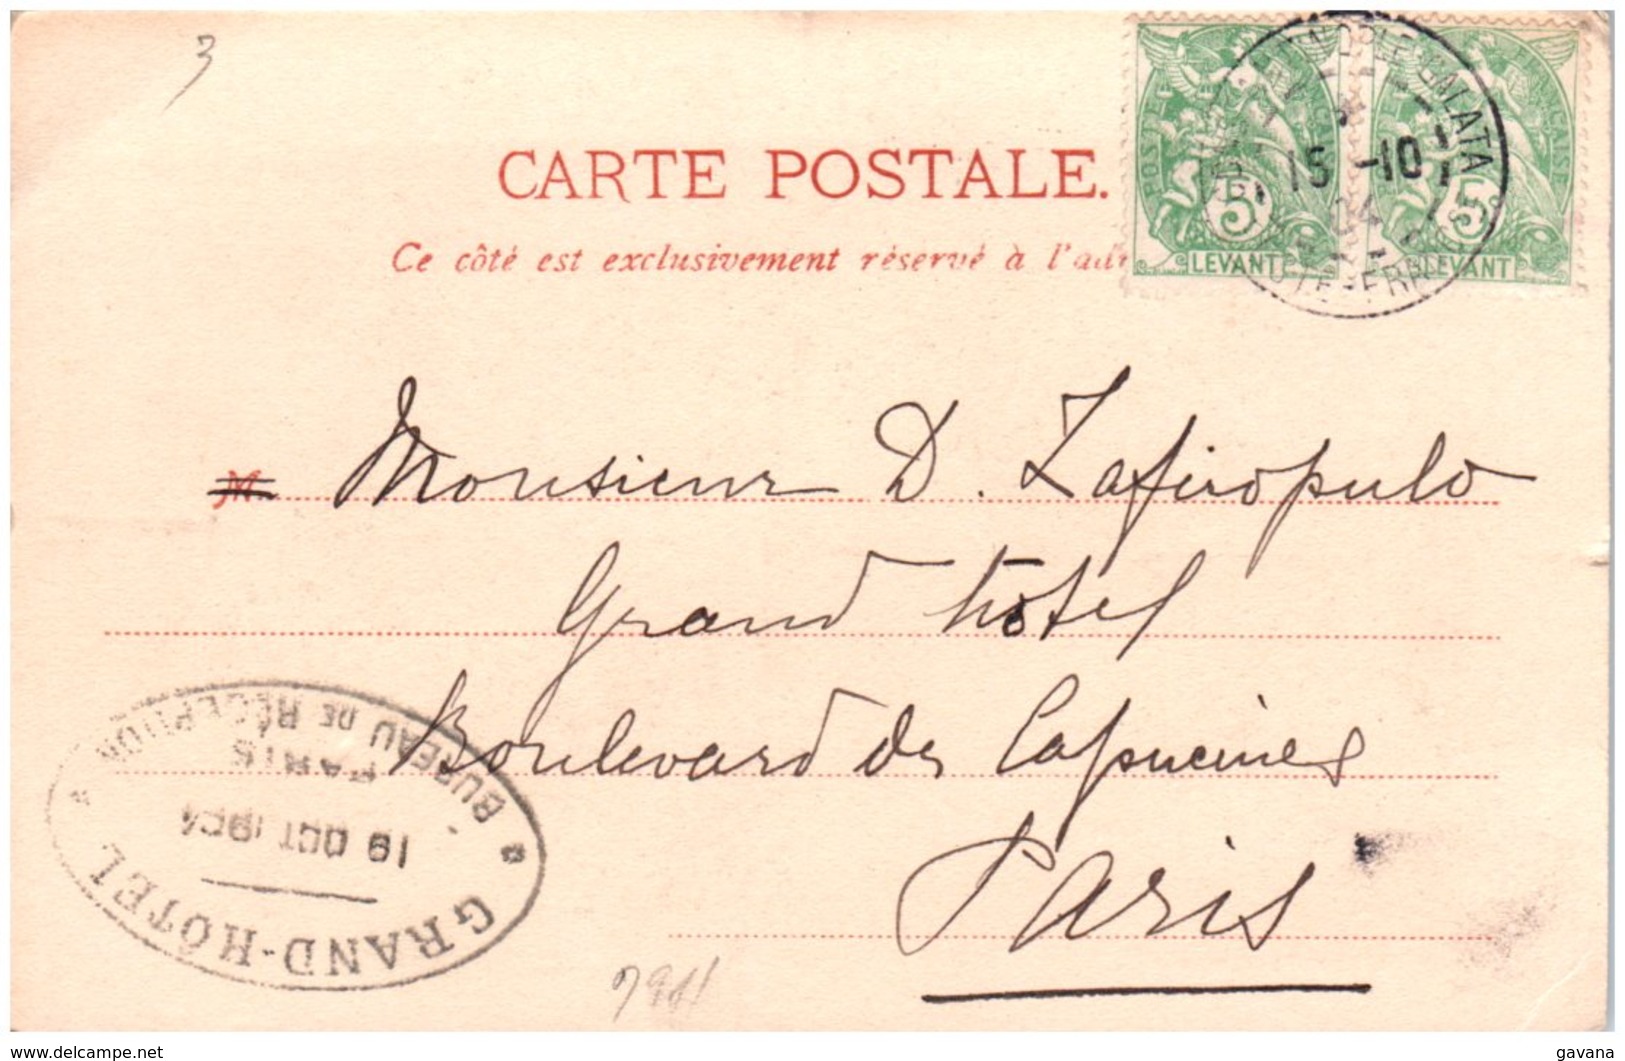 3
CARTE POSTALE.
Ce côté est exclusivement réservé à l'adr
POSTE FRANÇAISE
5c
LEVANT
5c
LEVANT
GALATA
15 -10
04
POSTE FRANÇ
M
Monsieur D. Zafiropulo
Grand hôtel
Boulevard des Capucines
Paris
GRAND-HÔTEL
19 OCT 1904
PARIS
BUREAU DE RÉCEPTION
www.delcampe.net
gavana